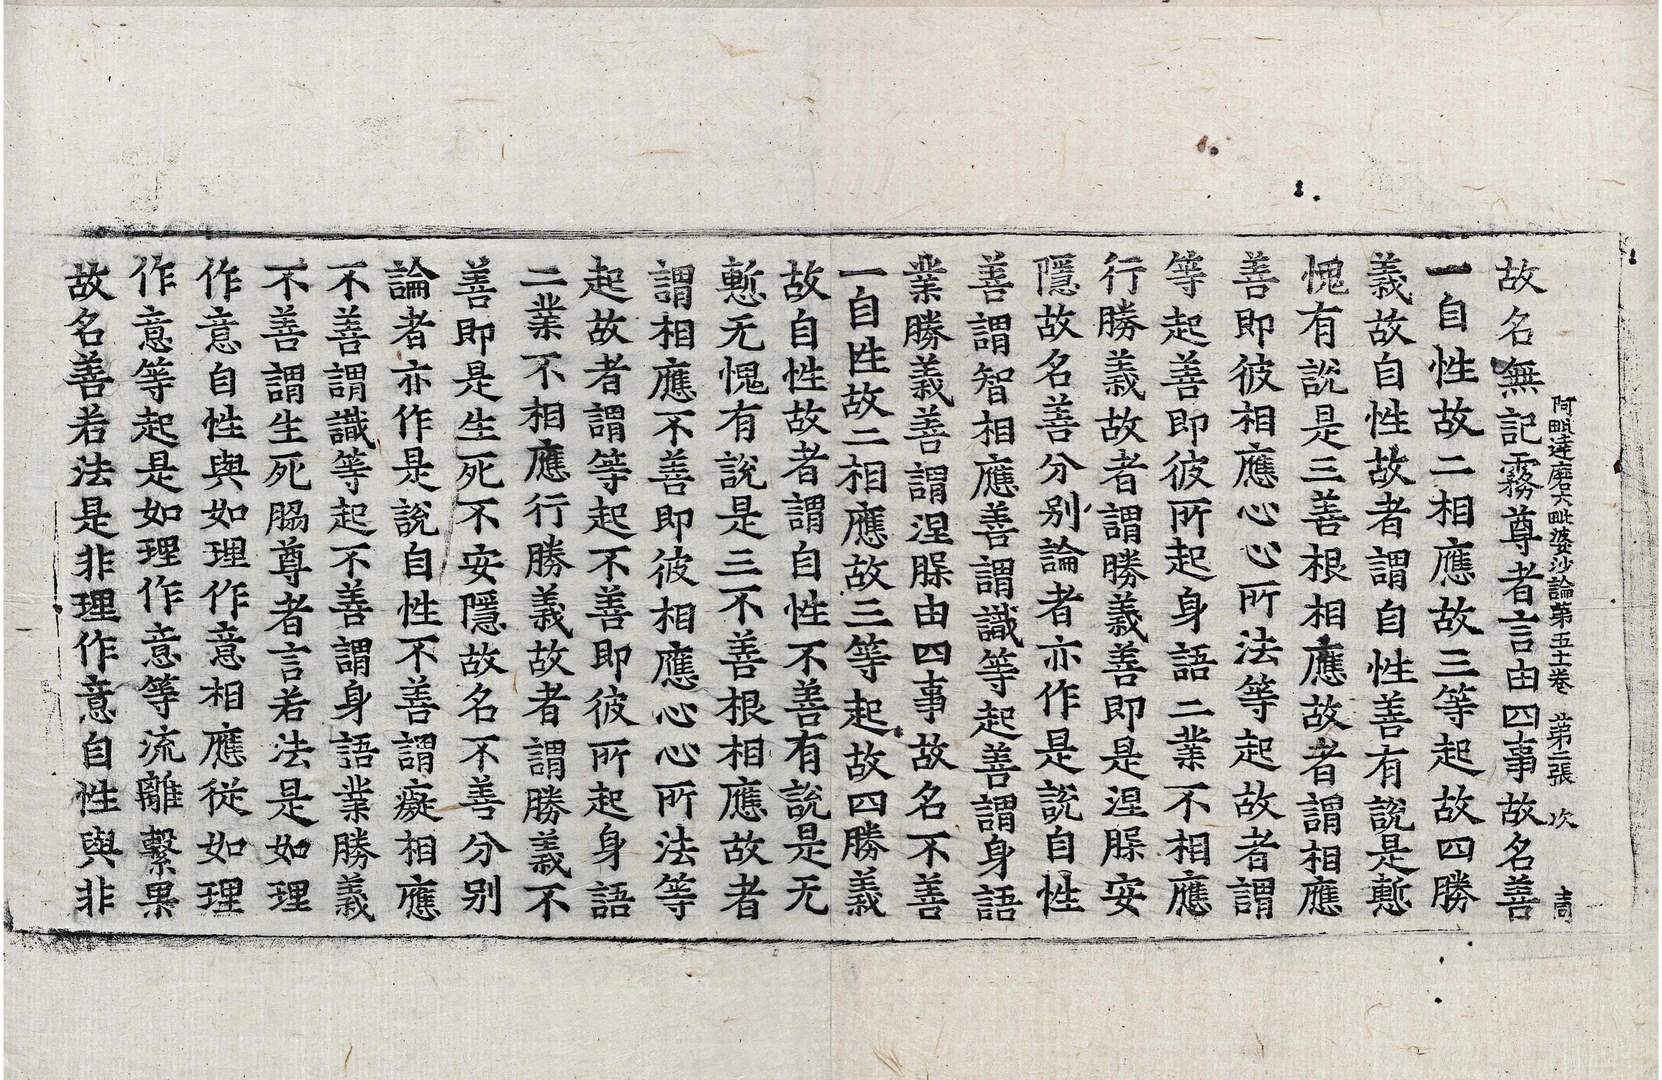 阿毗達磨大毗婆沙論第五十一卷 第二張 次
故名無記霧尊者言由四事故名善
一自性故二相應故三等起故四勝
義故自性故者謂自性善有說是慙
愧有說是三善根相應故者謂相應
善即彼相應心心所法等起故者謂
等起善即彼所起身語二業不相應
行勝義故者謂勝義善即是涅槃安
隱故名善分別論者亦作是說自性
善謂智相應善謂識等起善謂身語
業勝義善謂涅槃由四事故名不善
一自性故二相應故三等起故四勝義
故自性故者謂自性不善有說是无
慙无愧有說是三不善根相應故者
謂相應不善即彼相應心心所法等
起故者謂等起不善即彼所起身語
二業不相應行勝義故者謂勝義不
善即是生死不安隱故名不善分別
論者亦作是說自性不善謂癡相應
不善謂識等起不善謂身語業勝義
不善謂生死脇尊者言若法是如理
作意自性與如理作意相應從如理
作意等起是如理作意等流離繫果
故名善若法是非理作意自性與非